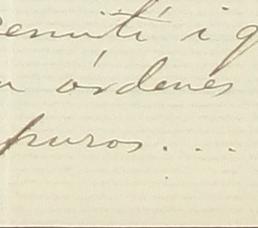 remití i q
a órdenes
puros....